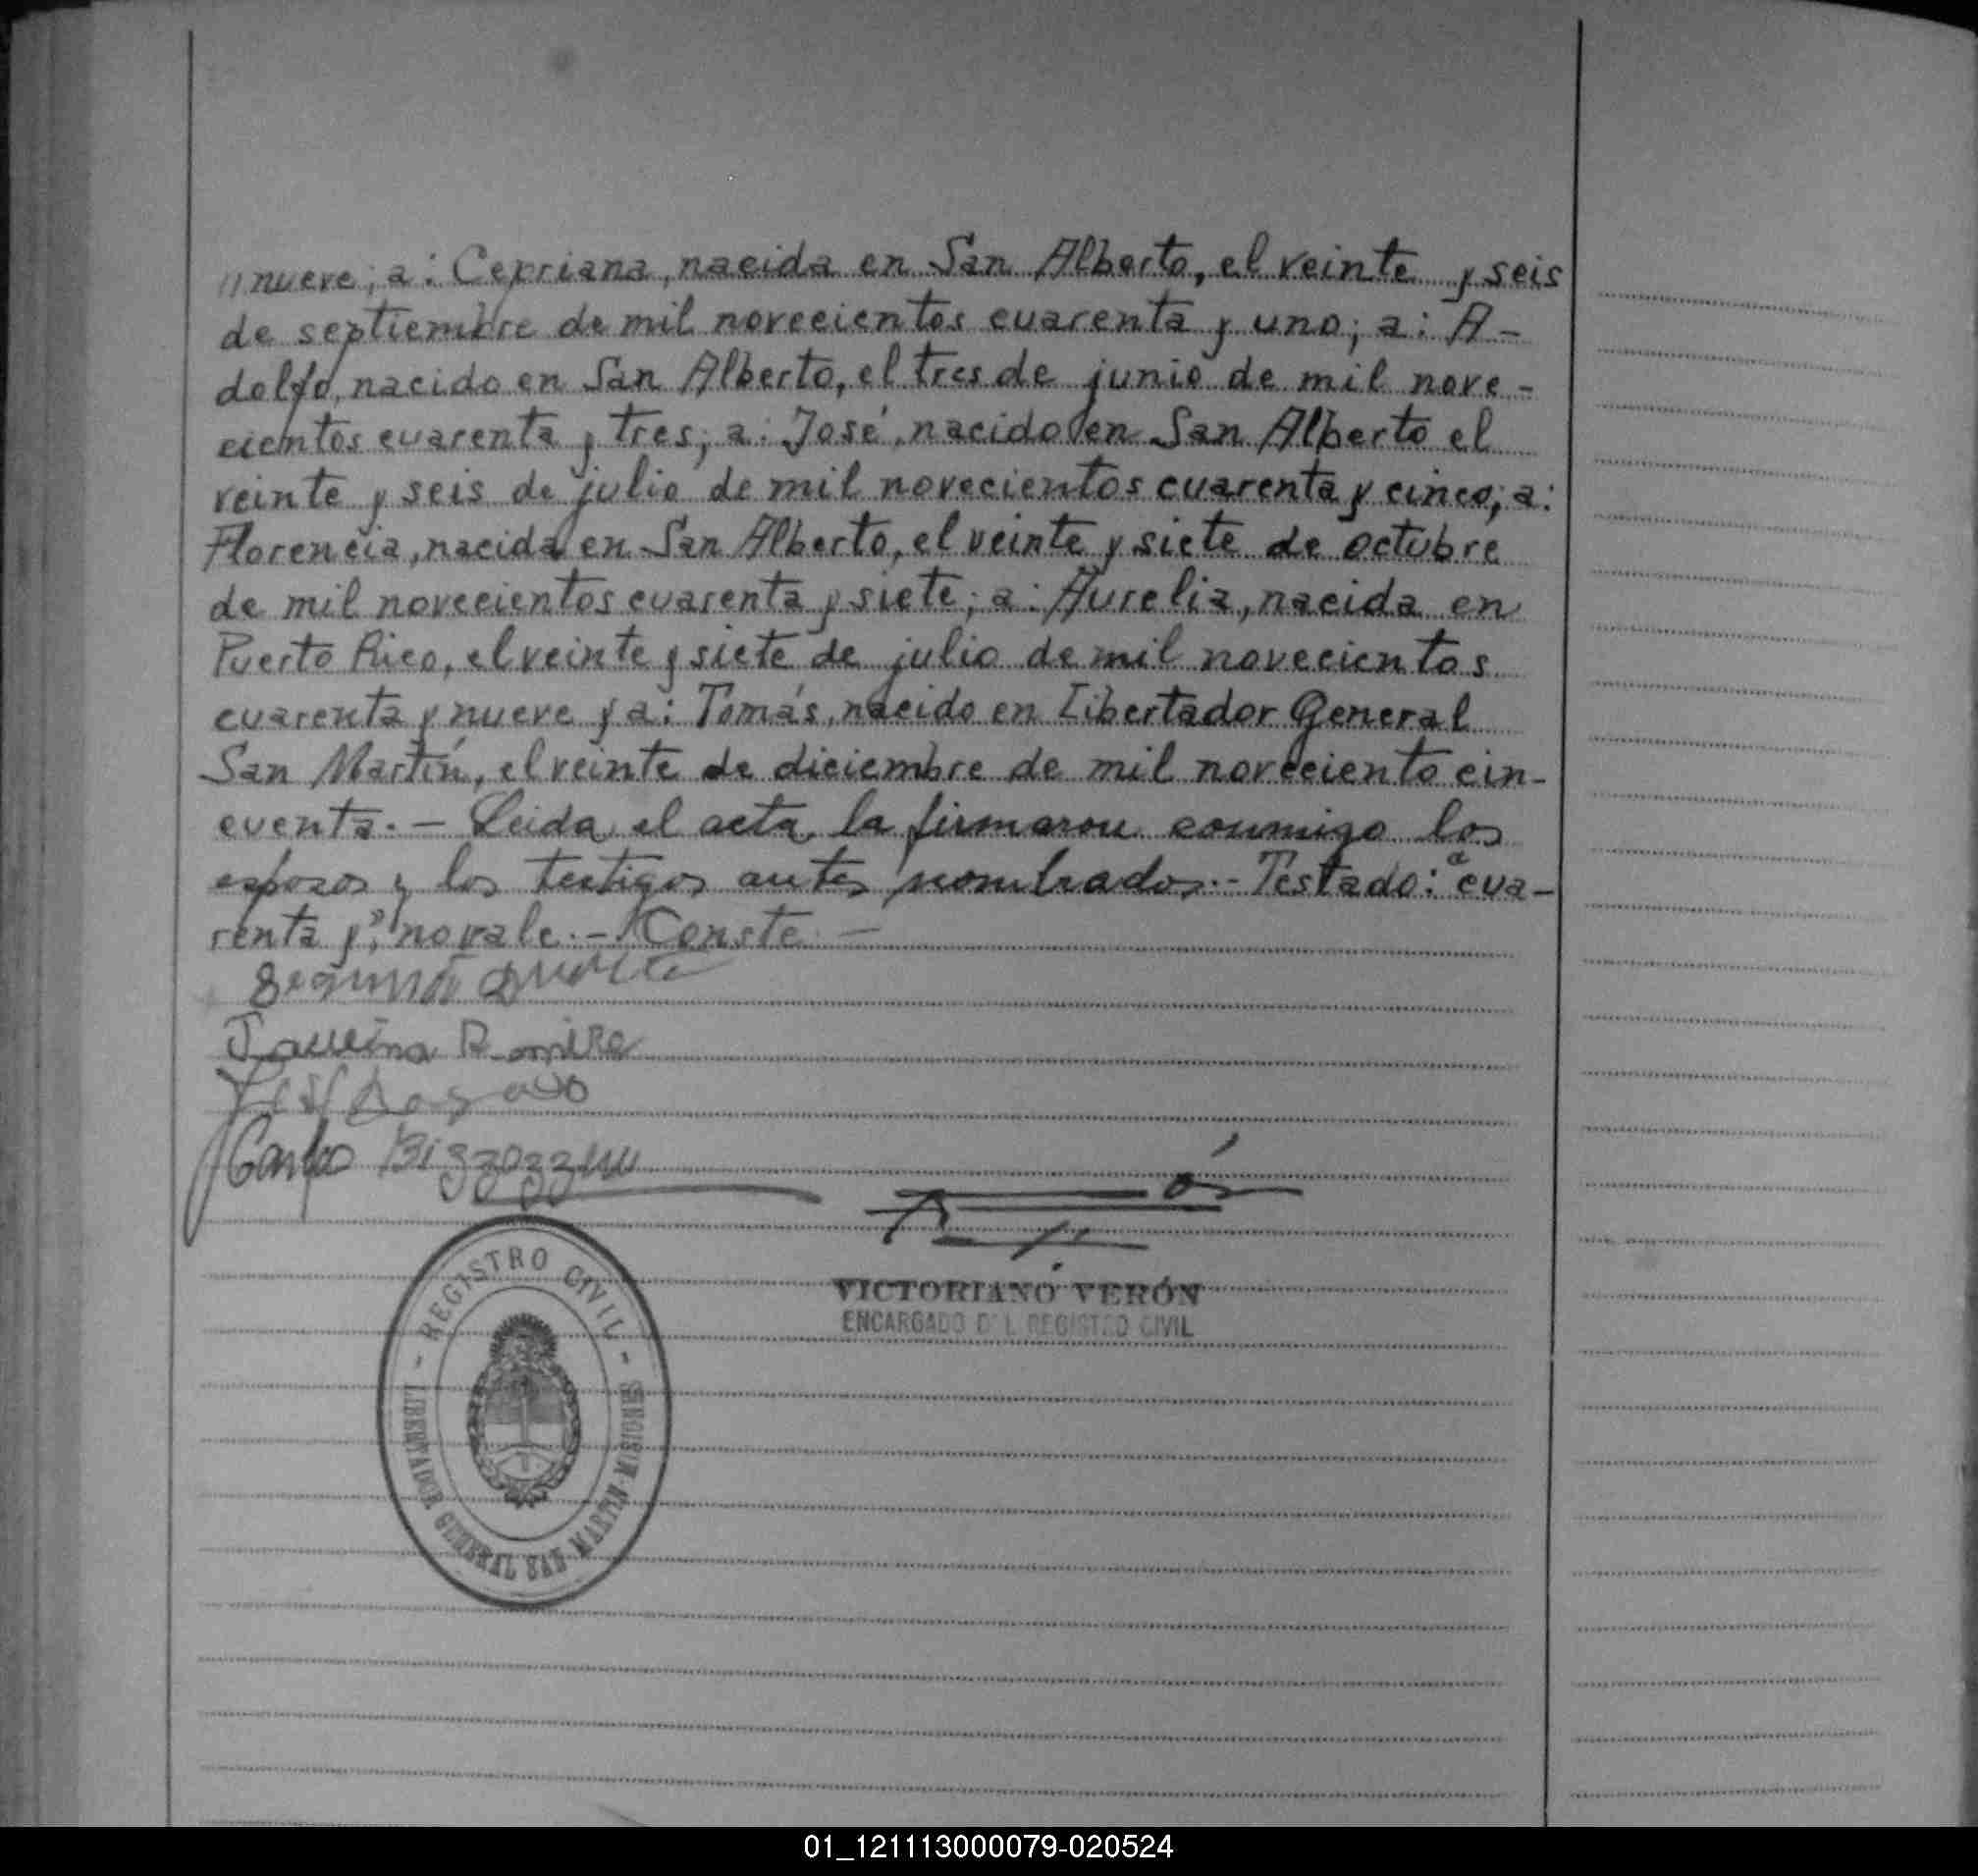 "nueve; a: Cepriana, nacida en San Alberto, el veinte y seis
de septiembre de mil novecientos cuarenta y uno; a: A-
dolfo, nacido en San Alberto, el tres de junio de mil nove-
cientos cuarenta y tres; a: José, nacido en San Alberto el
veinte y seis de julio de mil novecientos cuarenta y cinco; a:
Florencia, nacida en San Alberto, el veinte y siete de octubre
de mil novecientos cuarenta y siete; a: Aurelia, nacida en
Puerto Rico, el veinte y siete de julio de mil novecientos
cuarenta y nueve y a: Tomás, nacido en Libertador General
San Martín, el veinte de diciembre de mil noveciento cin-
cuenta.- Leida el acta, la firmaron conmigo los
esposos y los testigos antes nombrados.- Testado: "cua-
renta y", no vale.- Conste.-
Paulina Ramire
Carlos
VICTORIANO VERÓN
ENCARGADO DEL REGISTRO CIVIL
- REGISTRO CIVIL -
LIBERTADOR GENERAL SAN MARTIN MISIONES
01_121113000079-020524